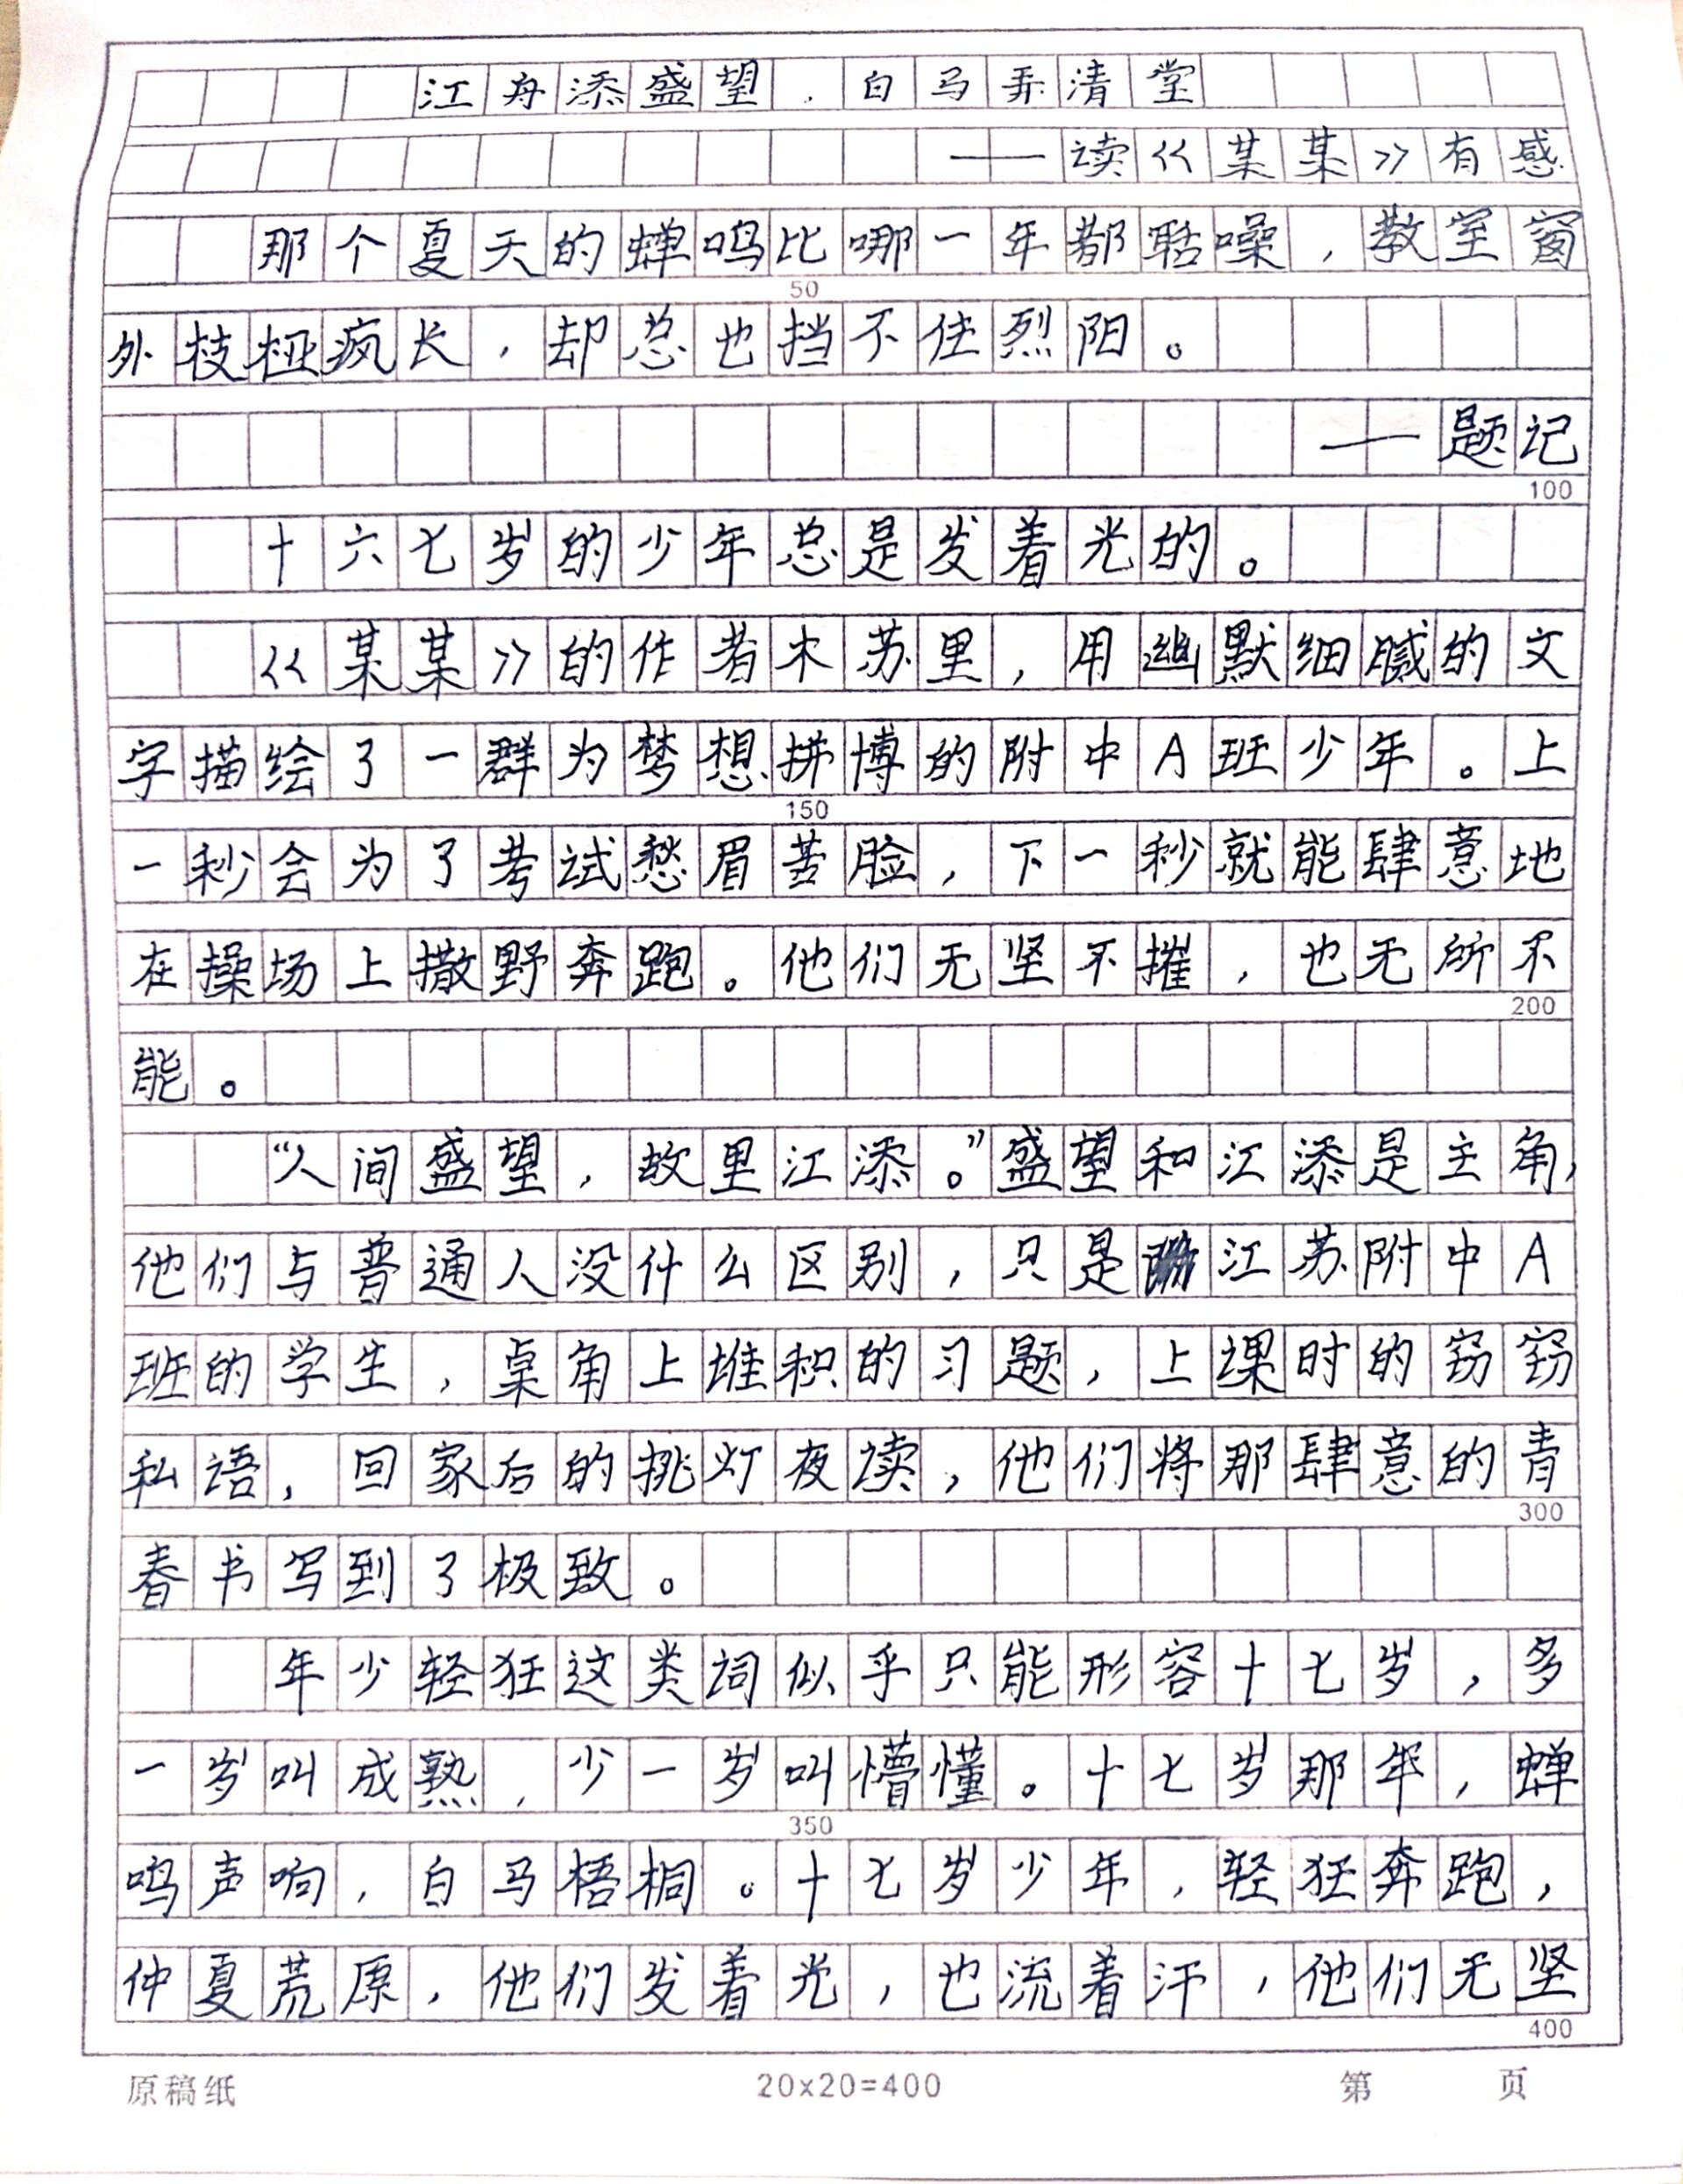 江舟添盛望，白马弄清堂
——读《某某》有感
那个夏天的蝉鸣比哪一年都聒噪，教室窗
50
外枝桠疯长，却总也挡不住烈阳。
——题记
100
十六七岁的少年总是发着光的。
《某某》的作者木苏里，用幽默细腻的文
字描绘了一群为梦想拼博的附中A班少年。上
150
一秒会为了考试愁眉苦脸，下一秒就能肆意地
在操场上撒野奔跑。他们无坚不摧，也无所不
200
能。
“人间盛望，故里江添。”盛望和江添是主角，
他们与普通人没什么区别，只是江苏附中A
班的学生，桌角上堆积的习题，上课时的窃窃
私语，回家后的挑灯夜读，他们将那肆意的青
300
春书写到了极致。
年少轻狂这类词似乎只能形容十七岁，多
一岁叫成熟，少一岁叫懵懂。十七岁那年，蝉
350
鸣声响，白马梧桐。十七岁少年，轻狂奔跑，
仲夏荒原，他们发着光，也流着汗，他们无坚
400
原稿纸 20x20=400 第 页